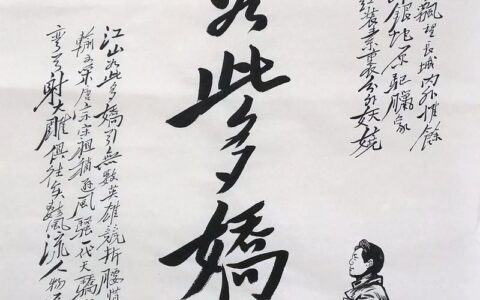 飄望長城内外惟餘
銀蛇原馳臘象
装素裹分外妖嬈
如此多嬌
江山如此多嬌引無數英雄競折腰惜
輸文采唐宗宋祖稍遜風騷一代天驕
彎弓射大雕俱往矣數風流人物